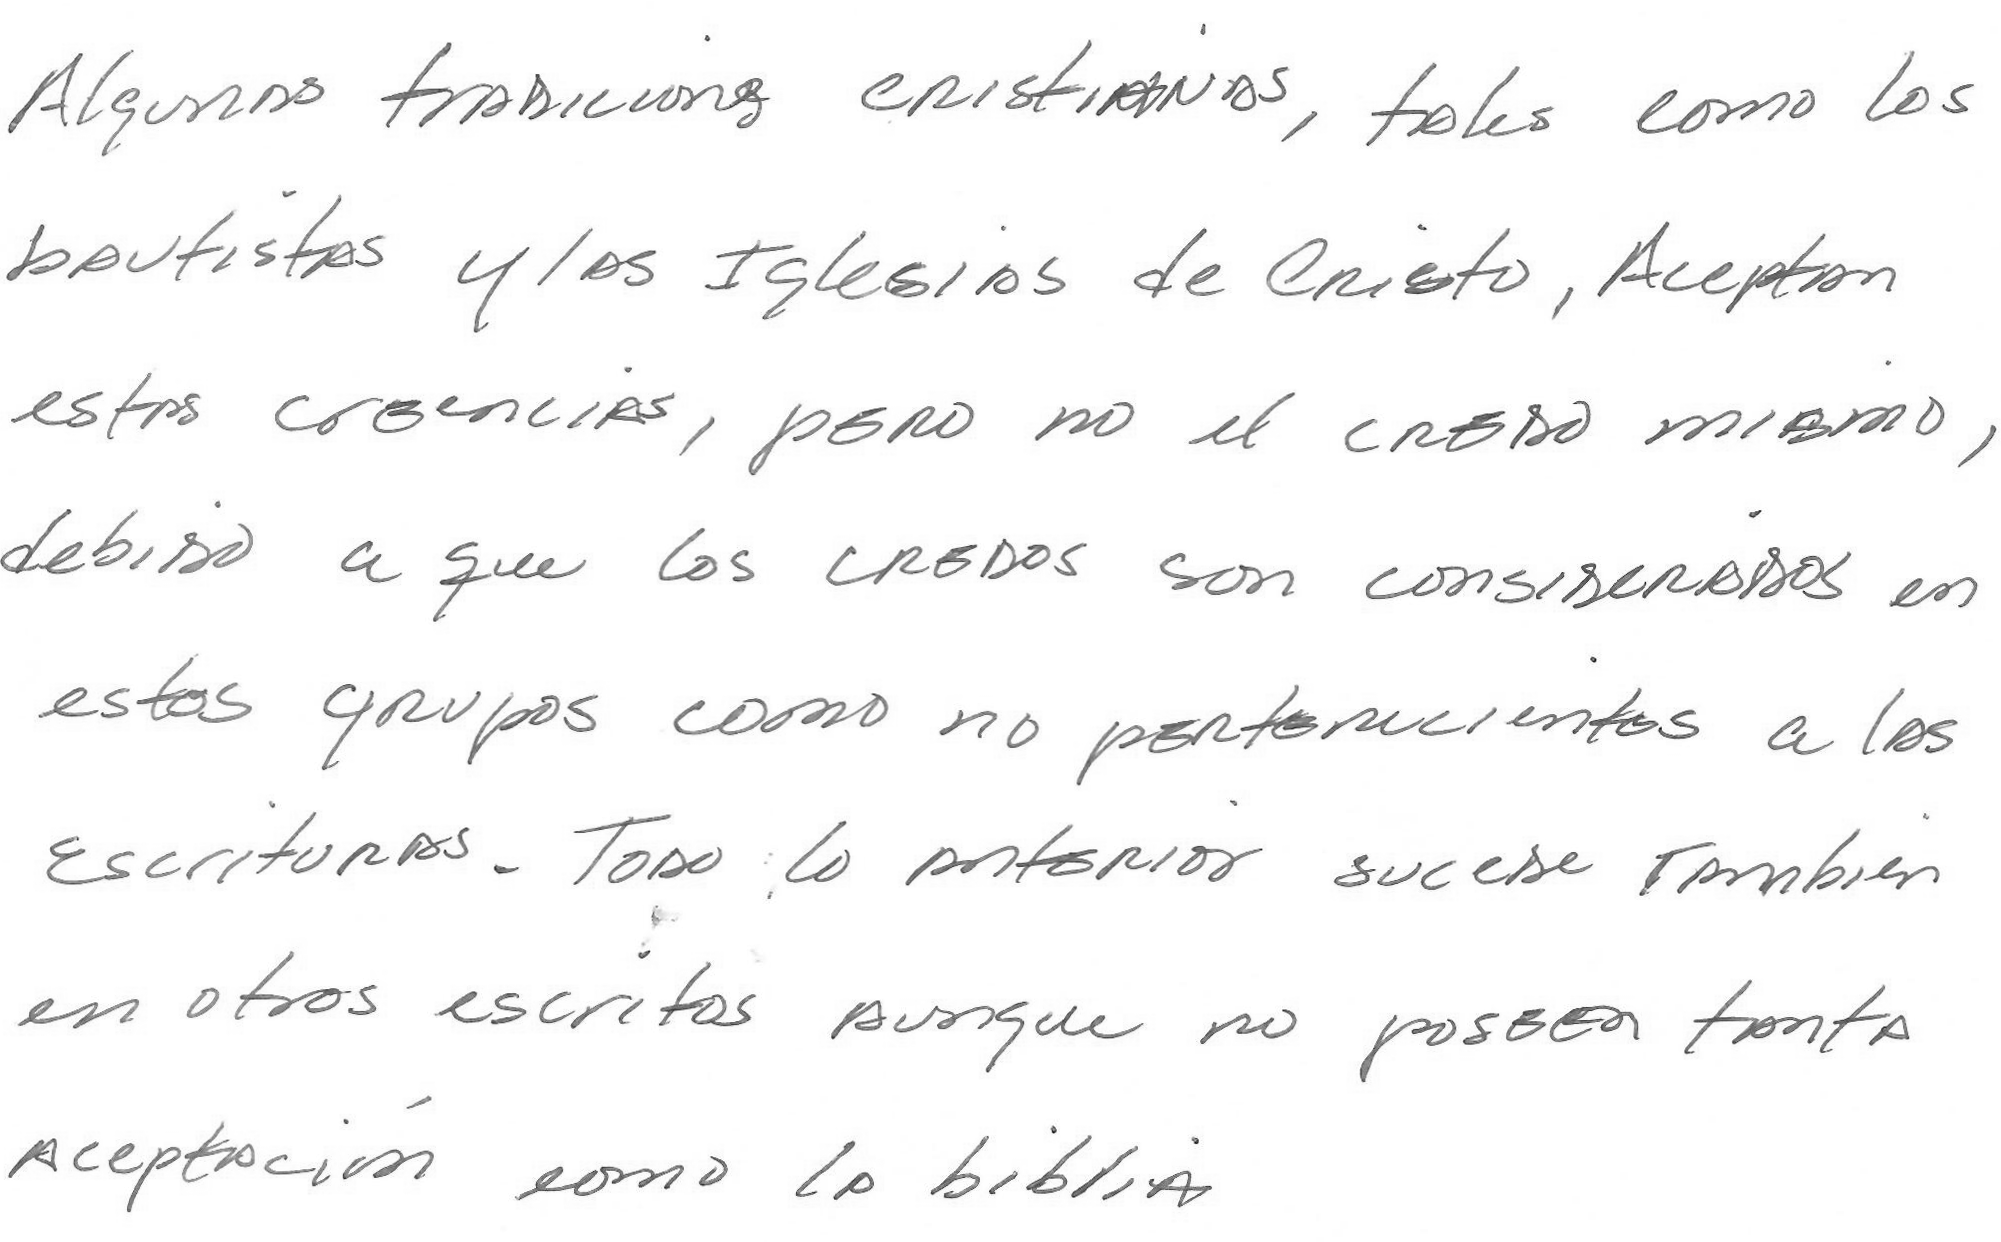 Algunas tradiciones cristianas, tales como los
bautistas y las Iglesias de Cristo, Aceptan
estas creencias, pero no el credo mismo,
debido a que los credos son considerados en
estos grupos como no pertenecientes a las
Escrituras. Todo lo anterior sucede Tambien
en otros escritos aunque no poseen tanta
aceptación como la biblia